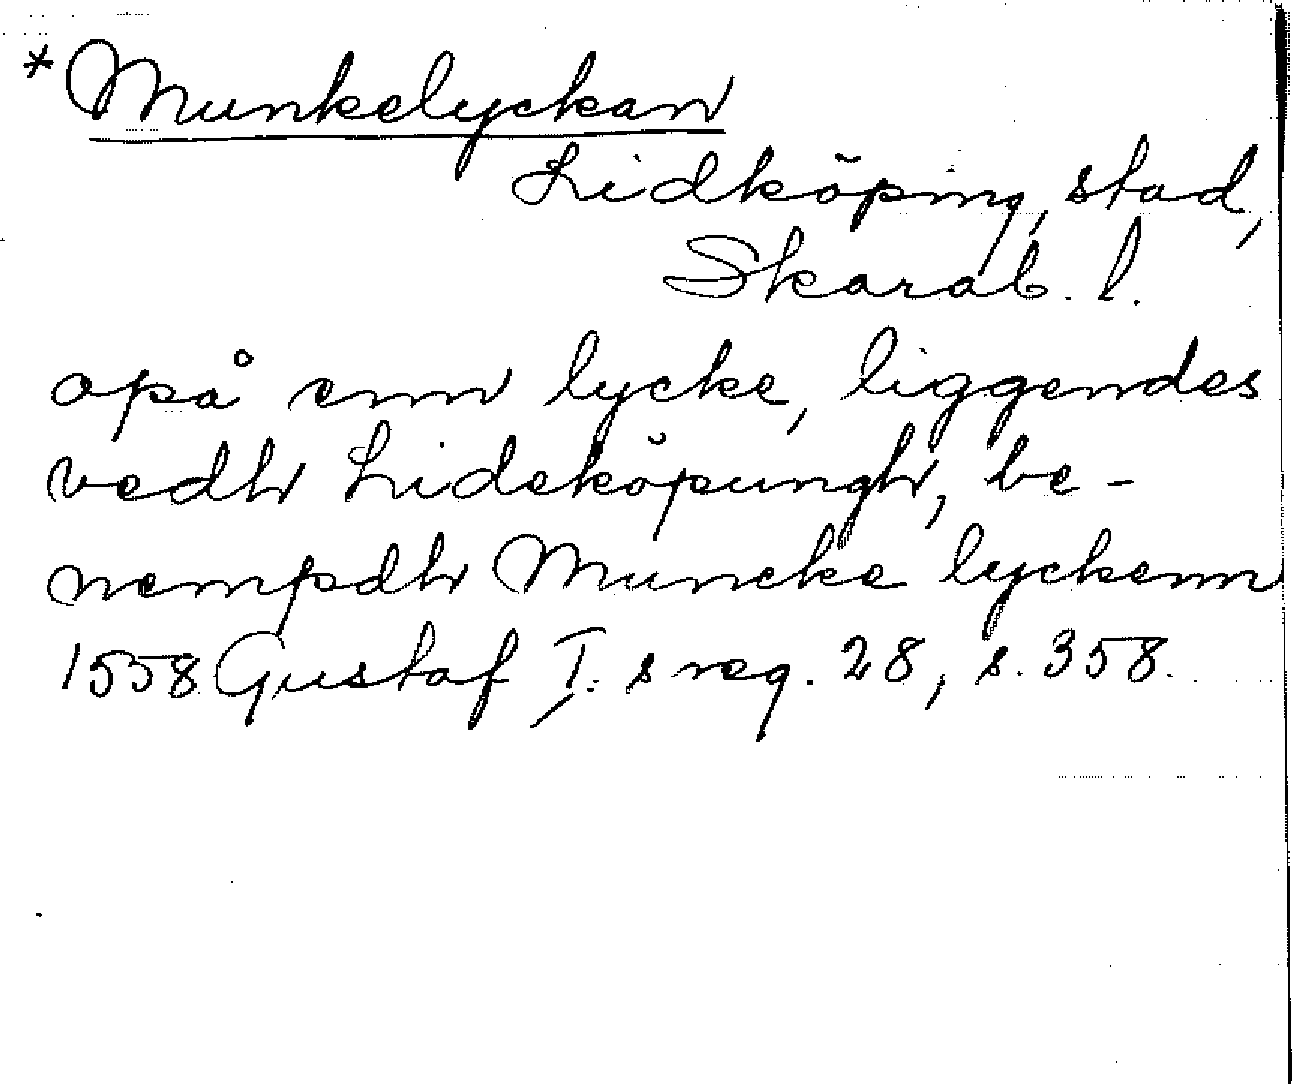 * Munkelyckan
Lidköping, stad,
Skarab. l.
opå enn lycke, liggendes
vedh Lideköpungh, be-
nempdh Muncke lyckenn
1558 Gustaf I:s reg. 28, s. 358.